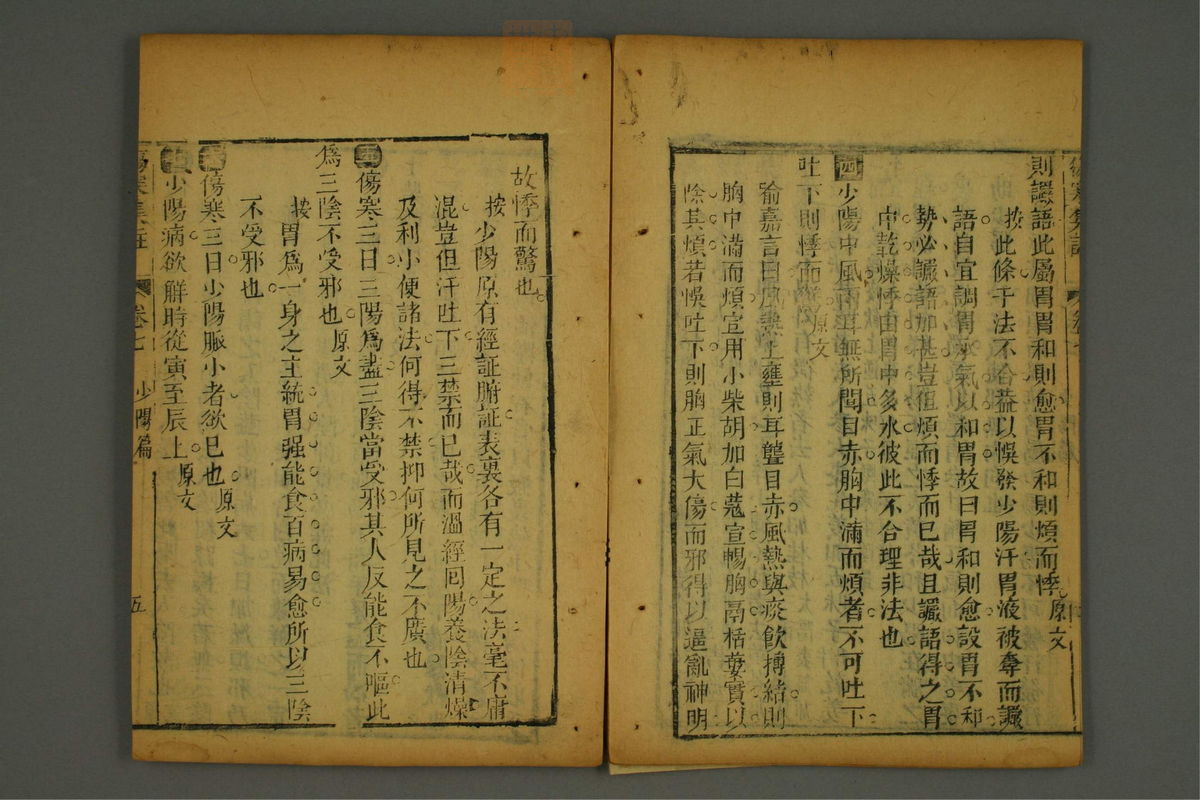 傷寒集註
則讝語此屬胃胃和則愈胃不和則煩而悸原文
按此條于法不合葢以悞發少陽汗胃液被奪而讝
語自宜調胃承氣以和胃故曰胃和則愈設胃不和
勢必讝語加甚豈徂煩而悸而已哉且讝語得之胃
中乾燥悸由胃中多水彼此不合理非法也
四少陽中風兩耳無所聞目赤胸中滿而煩者不可吐下
吐下則悸而原文
喻嘉言曰風熱上壅則耳聾目赤風熱與痰飮摶結則
胸中滿而煩宜用小柴胡加白蔻宣暢胸鬲栝蔞實以
除其煩若悞吐下則胸正氣大傷而邪得以逼亂神明
故悸而驚也
按少陽原有經証腑証表裏各有一定之法毫不庸
混豈但汗吐下三禁而已哉而溫經囘陽養陰清燥
及利小便諸法何得不禁抑何所見之不廣也
五傷寒三日三陽爲盡三陰當受邪其人反能食不嘔此
爲三陰不受邪也原文
按胃爲一身之主統胃强能食百病易愈所以三陰
不受邪也
六傷寒三日少陽脈小者欲巳也原文
七少陽病欲解時從寅至辰上原文
傷寒集註 卷七 少陽篇 五